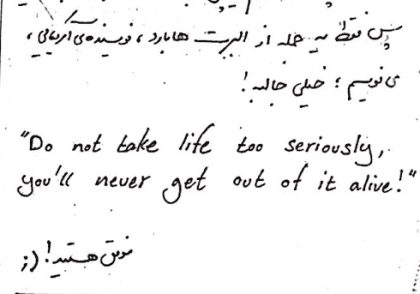 پس فقط یه جمله از البرت هابارد، نویسنده‌ی آمریکایی،
می‌نویسم؛ خیلی جالبه!
"Do not take life too seriously,
you'll never get out of it alive!"
موفق هستید! (;